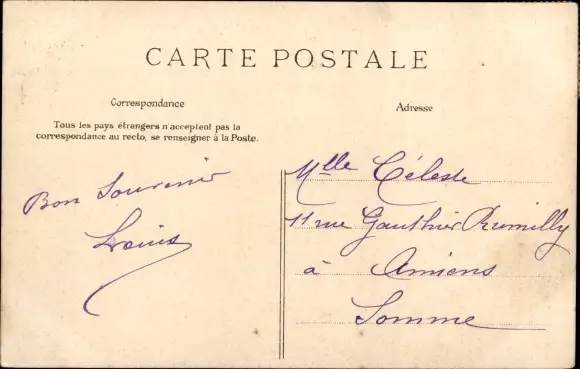 CARTE POSTALE
Correspondance
Tous les pays étrangers n'acceptent pas la
correspondance au recto, se renseigner à la Poste.
Adresse
Bon Souvenir
Louis
Mlle Céleste
11 rue Gauthier Rumilly
à Amiens
Somme